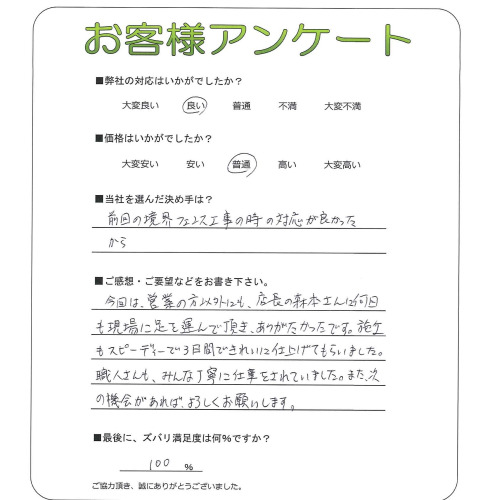 お客様アンケート
■弊社の対応はいかがでしたか？
大変良い 良い 普通 不満 大変不満
■価格はいかがでしたか？
大変安い 安い 普通 高い 大変高い
■当社を選んだ決め手は？
前回の境界フェンス工事の時の対応が良かった
から
■ご感想・ご要望などをお書き下さい。
今回は、営業の方以外にも、店長の森本さんに何回
も現場に足を運んで頂き、ありがたかったです。施工
もスピーディーで3日間できれいに仕上げてもらいました。
職人さんも、みんな丁寧に仕事をされていました。また、次
の機会があれば、よろしくお願いします。
■最後に、ズバリ満足度は何%ですか？
100 %
ご協力頂き、誠にありがとうございました。